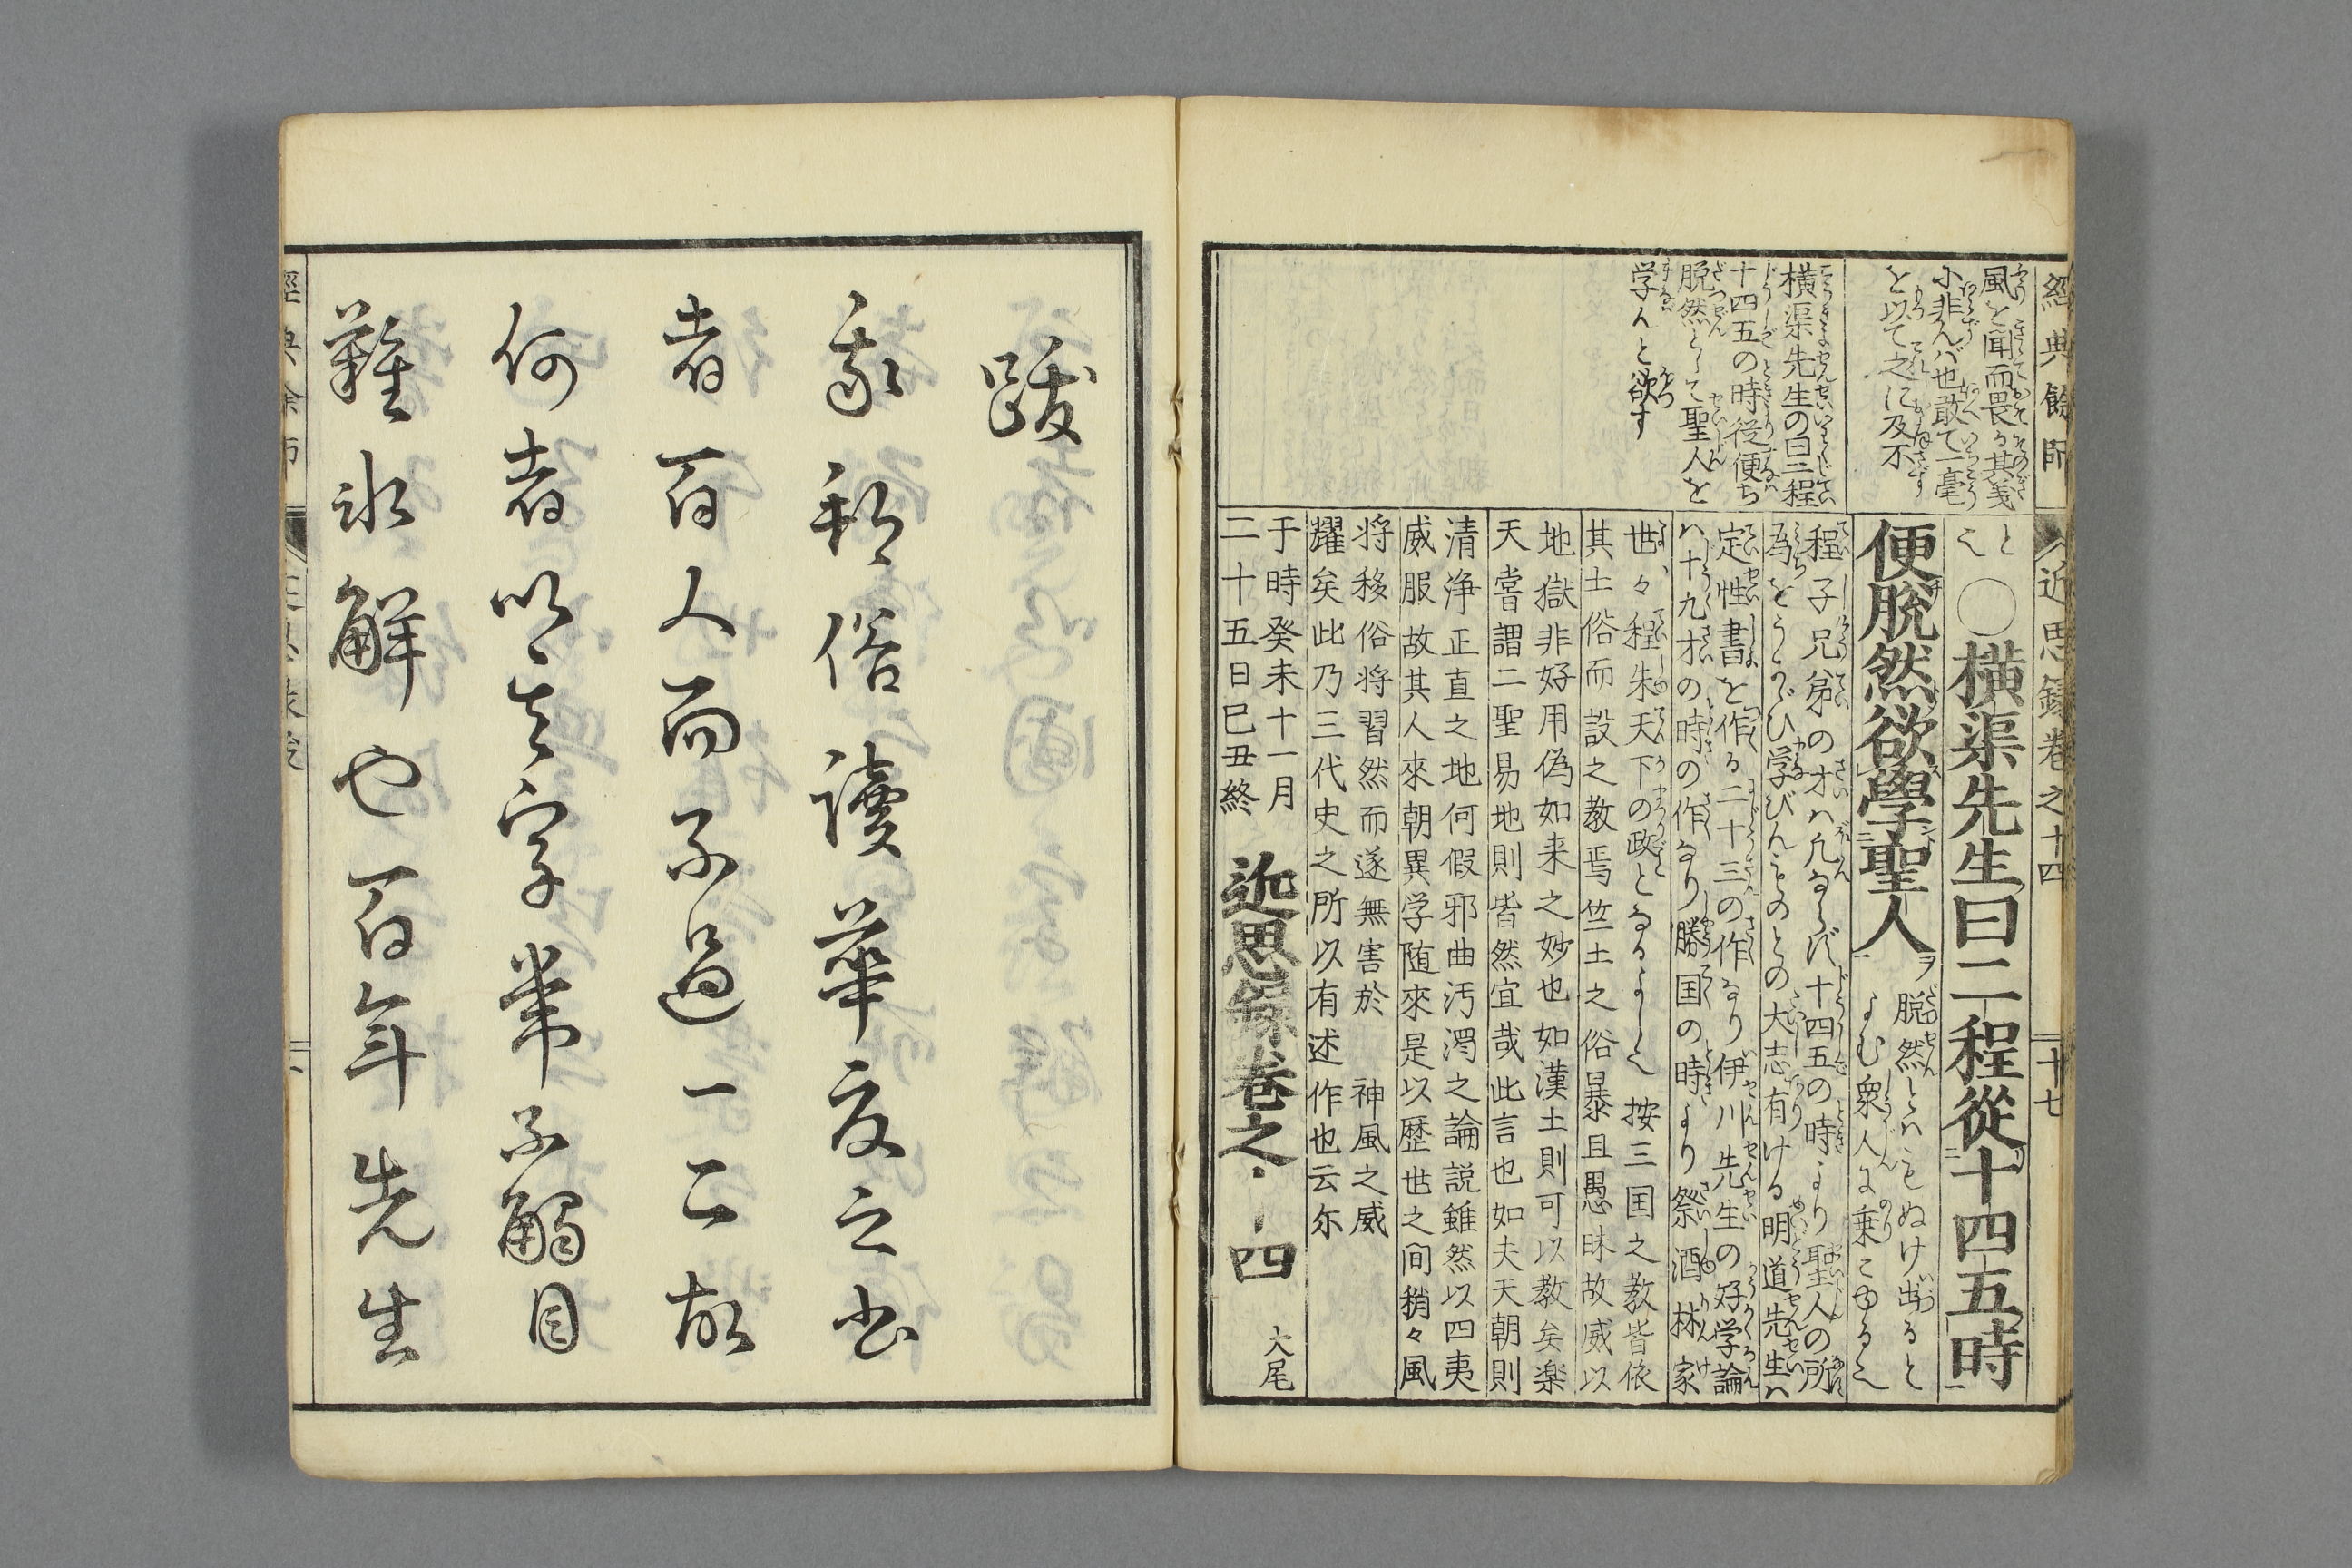 經典餘師
近思録巻之十四
十七
風を聞而畏る其義
小非んバ也敢て一毫
を以て之に及不
横渠先生の曰二程
十四五の時従便ち
脱然として聖人を
学んと欲す
○横渠先生曰二程從十四五時
便脱然欲學聖人
脱然とハもぬけ出ると
よむ衆人に乗こゆる也
程子兄弟の才ハ凡ならず十四五の時より聖人の所
為をうかゞひ学びんものとの大志有ける明道先生ハ
定性書を作る二十三の作なり伊川先生の好学論
ハ十九才の時の作なり勝国の時より祭酒林家
世々程朱天下の政となるよし也 按三国之教皆依
其土俗而設之教焉竺土之俗暴且愚昧故威以
地獄非好用偽如来之妙也如漢土則可以教矣楽
天嘗謂二聖易地則皆然宜哉此言也如夫天朝則
清浄正直之地何假邪曲汚濁之論説雖然以四夷
威服故其人來朝異学随來是以歴世之间稍々風
将移俗将習然而遂無害於 神風之威
耀矣此乃三代史之所以有述作也云尓
于時癸未十一月
二十五日巳丑終
近思録巻之十四
大尾
跋
我邦俗讀華文之書
者百人而不過一二故
何者以其字業不觸目
難氷解也百年先生